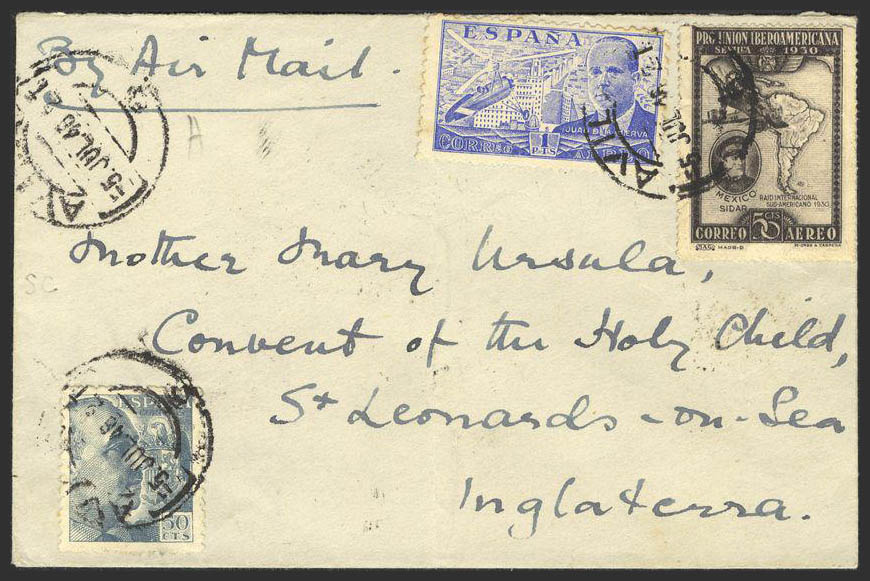 By Air Mail.
ESPAÑA
JUAN DE LA CIERVA
CORREO 1 PTS AEREO
PRO UNION IBEROAMERICANA
SEVILLA 1930
MEXICO
SIDAR
RAID INTERNACIONAL
SUD-AMERICANO 1930
50 CTS
CORREO AEREO
15 JUL 46
A
15 JUL
Mother Mary Ursula,
SC
Convent of the Holy Child,
St Leonards-on-Sea
Inglaterra.
ESPAÑA
15 JUL 46
50
CTS